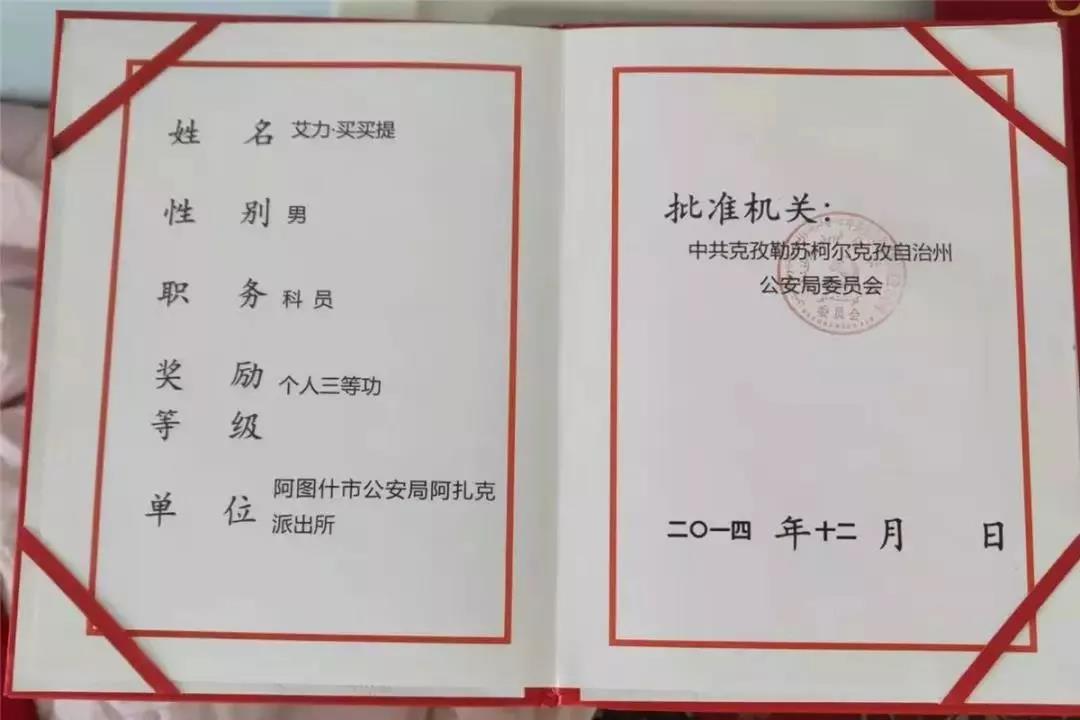 姓 名 艾力·买买提
性 别 男
职 务 科员
奖 励 个人三等功
等 级
单 位 阿图什市公安局阿扎克
派出所
批准机关：
中共克孜勒苏柯尔克孜自治州
公安局委员会
委员会
二〇一四 年 十二 月 日